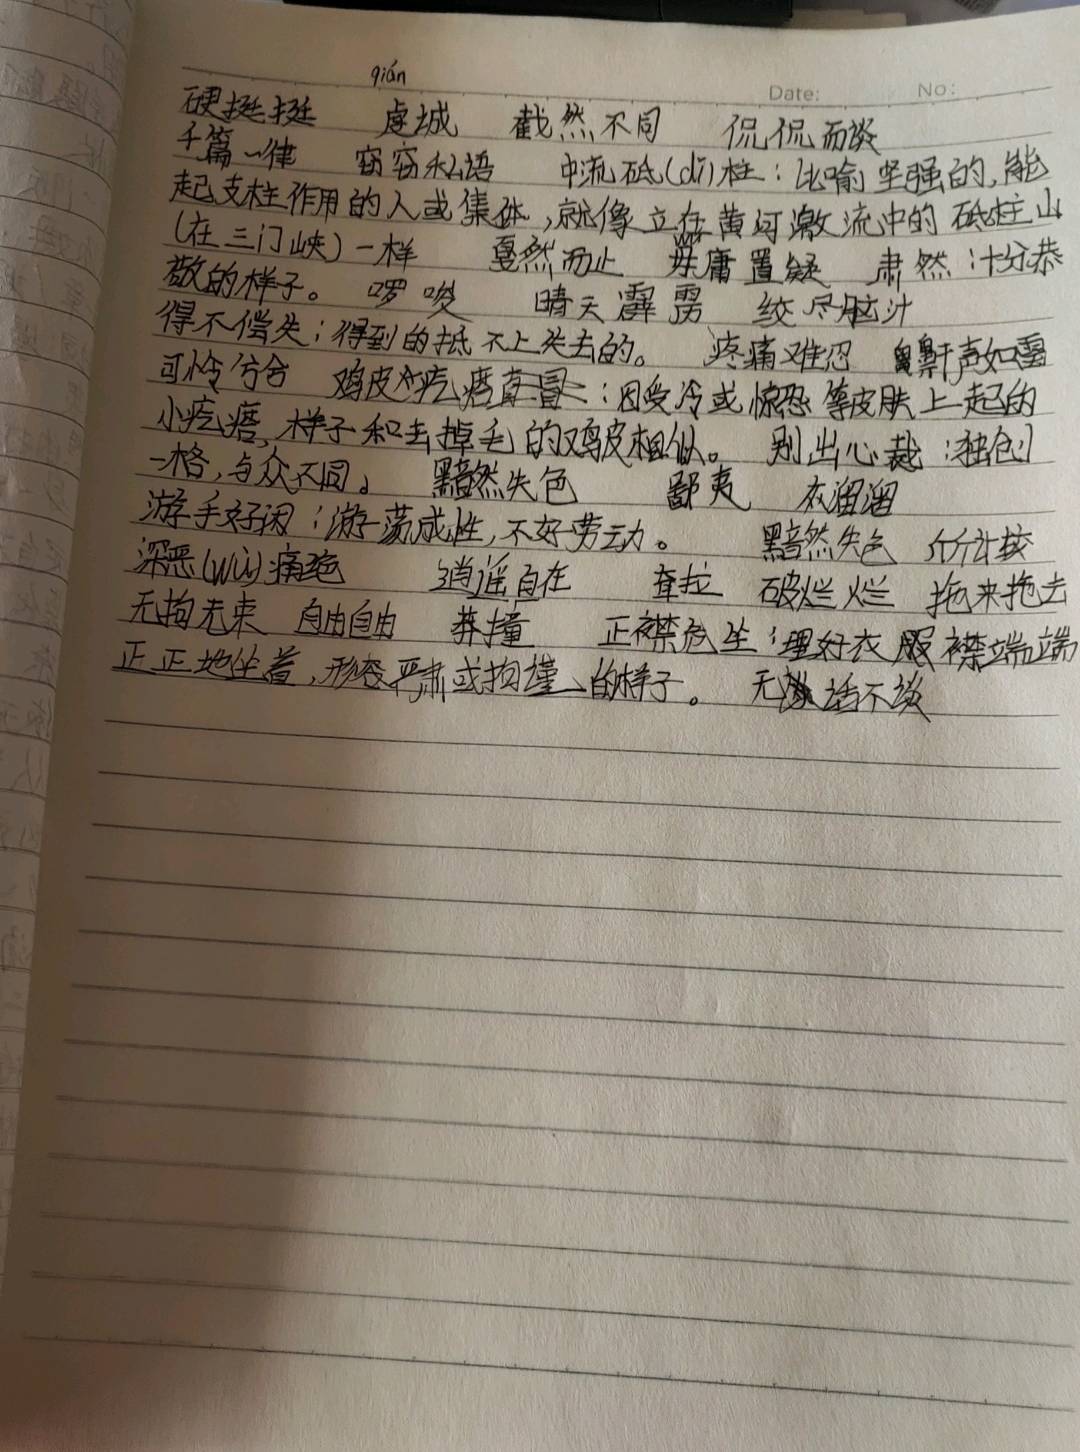 qián
Date: No:
硬挺挺 虔城 截然不同 侃侃而谈
千篇一律 窃窃私语 中流砥(dǐ)柱：比喻坚强的,能
起支柱作用的人或集体,就像立在黄河激流中的砥柱山
(在三门峡)一样 戛然而止 毋庸置疑 肃然：十分恭
敬的样子。 啰唆 晴天霹雳 绞尽脑汁
得不偿失：得到的抵不上失去的。 疼痛难忍 鼾声如雷
可怜兮兮 鸡皮疙瘩直冒：因受冷或惊恐等皮肤上起的
小疙瘩,样子和去掉毛的鸡皮相似。 别出心裁：独创
一格,与众不同。 黯然失色 鄙夷 灰溜溜
游手好闲：游荡成性,不好劳动。 黯然失色 斤斤计较
深恶(wù)痛绝 逍遥自在 耷拉 破烂烂 拖来拖去
无拘无束 自由自由 莽撞 正襟危坐：理好衣服襟端端
正正地坐着,形容严肃或拘谨的样子。 无话不谈